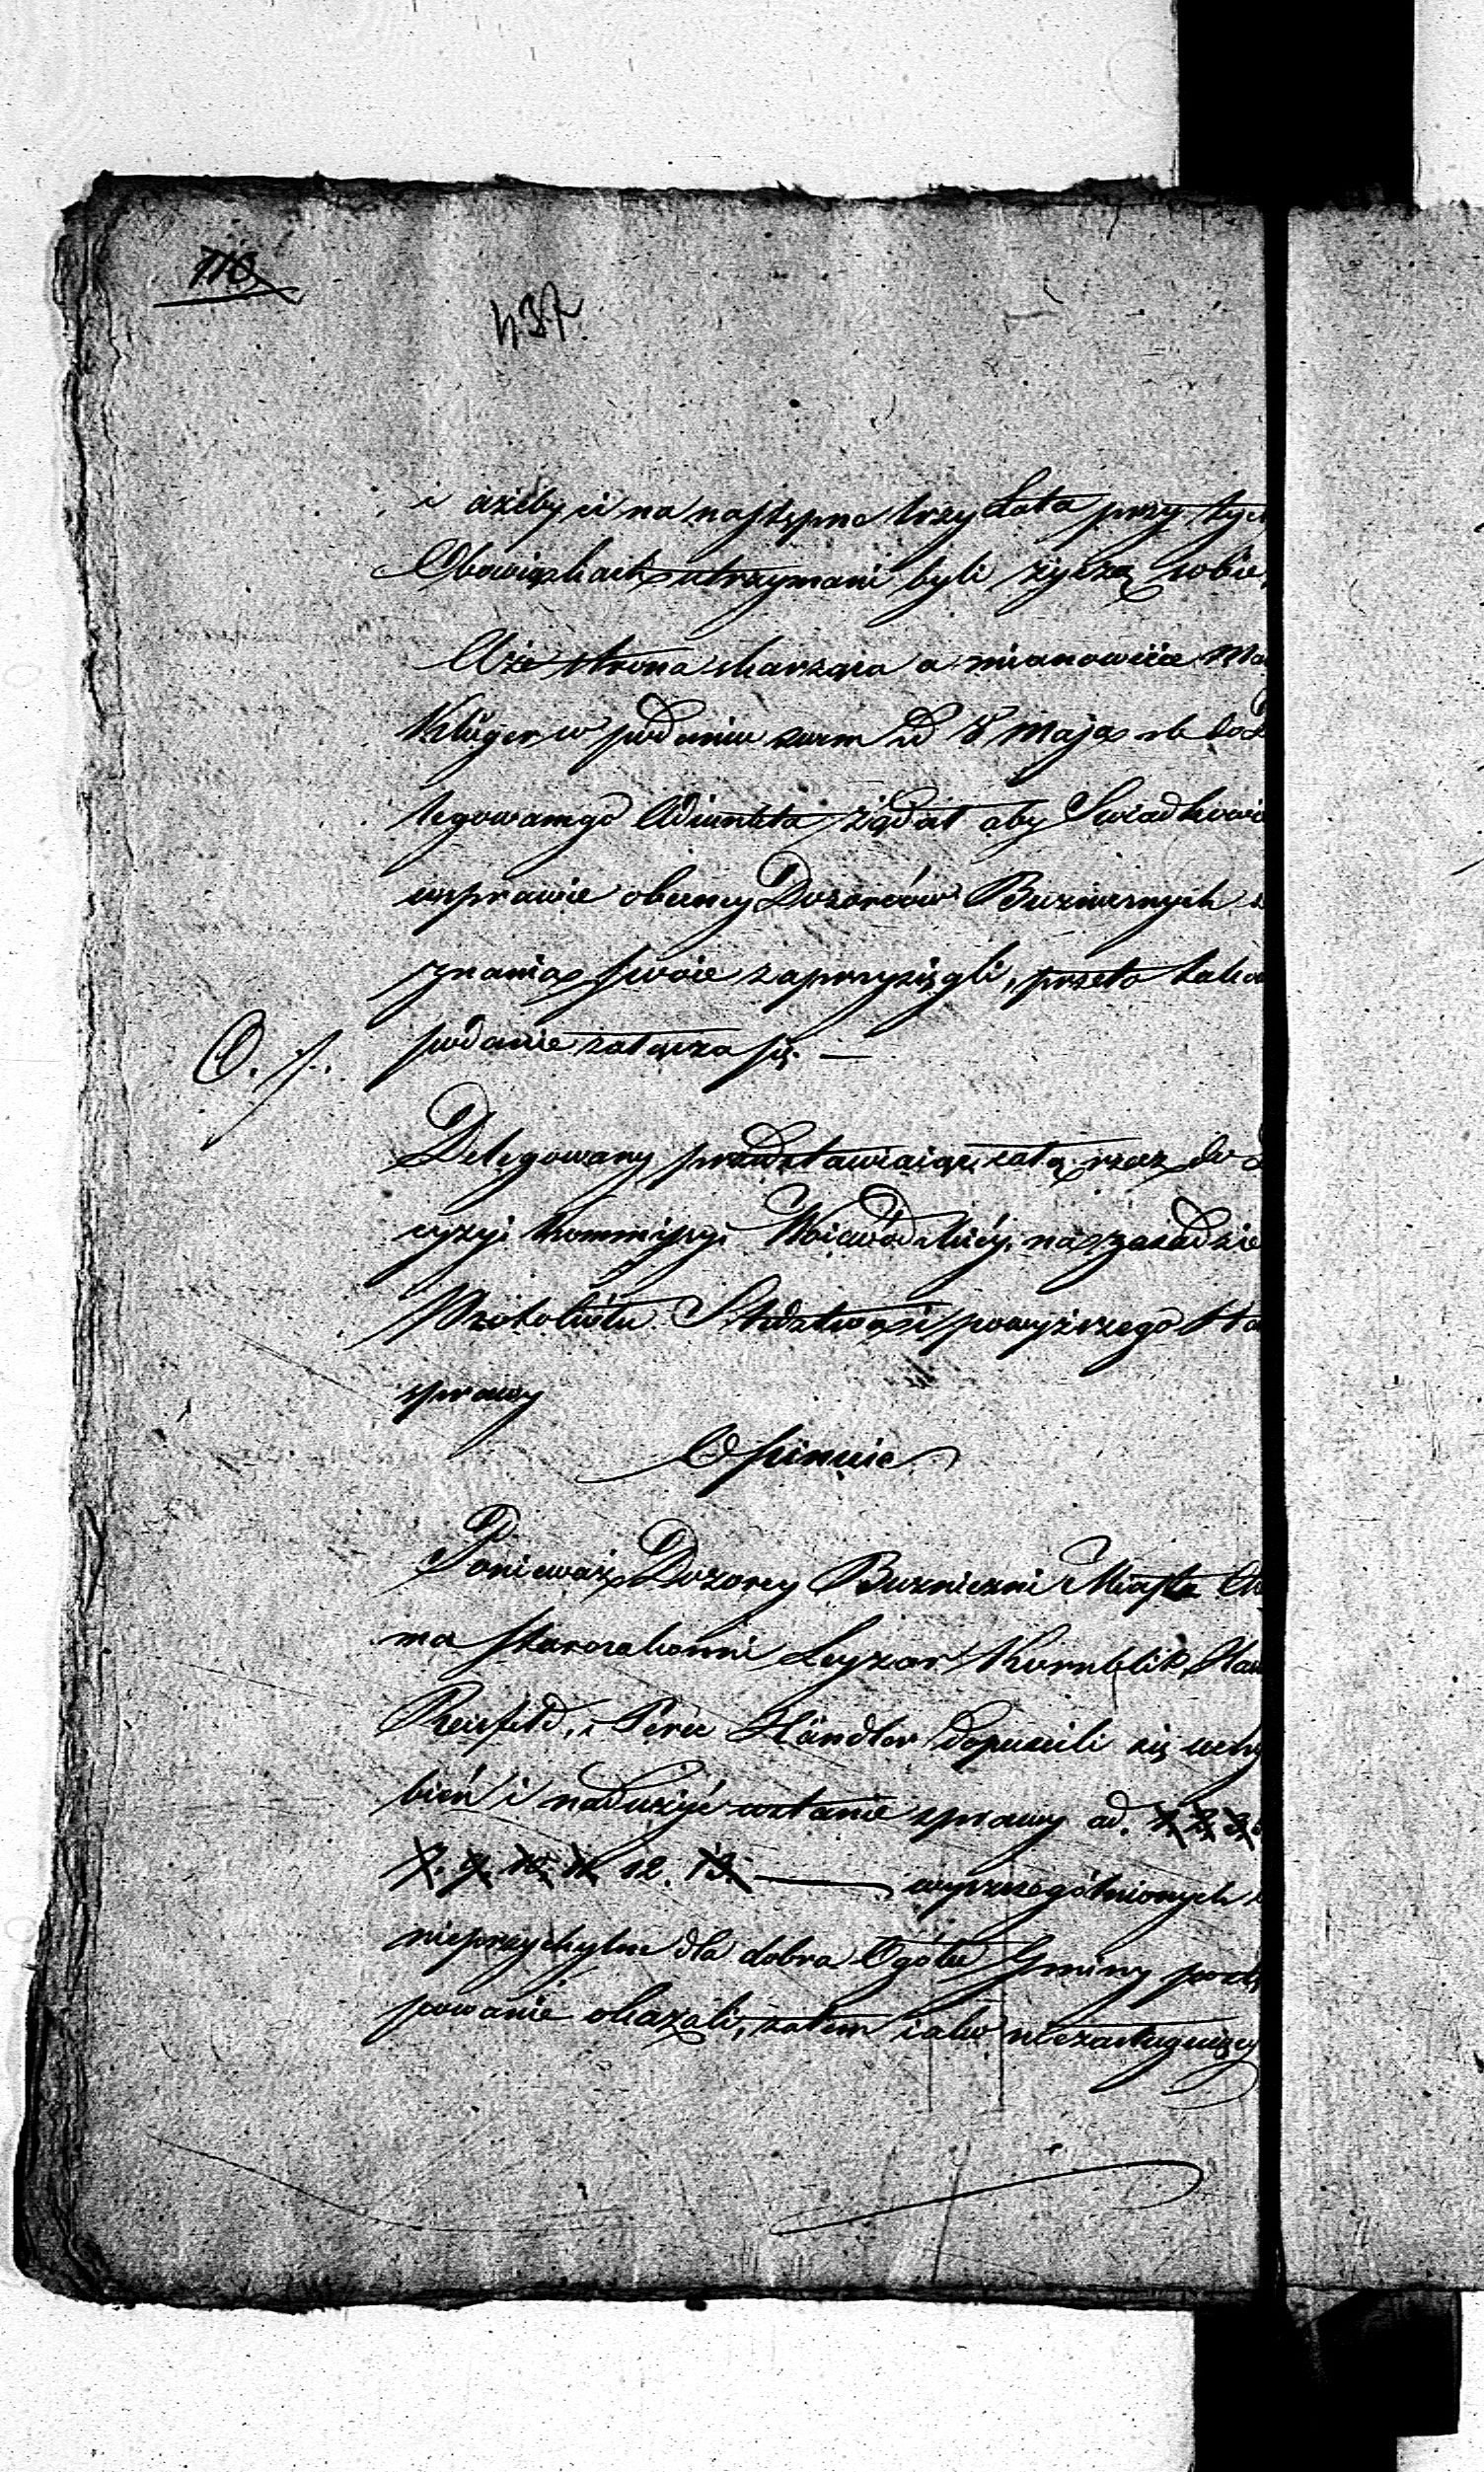 110
437.
i ażeby ci na następne trzy Lata przy tych
Obowiązkach utrzymani byli życzą sobie,
Aże strona skarżąca a mianowicie
Klüger w podaniu swem d 8 Maja rb do
legowanego Adiunkta żądał aby Swiadkowie
wsprawie obecney Dozorców Buznicznych
znania swoie zaprzysięgli, przeto takie
O. /. podanie załącza się. —
Delegowany przedstawiaiąc całą rzecz do
cyzyi Kommissyi Woiewódzkiéy, na zasadzie
Protokółu Sledztwa i powyższego
sprawy
Opiniuie
Ponieważ Dozorcy Buzniczni Miasta
ma starozakonni Leyzor Kornblik,
Reisfeld, i Perec Händler dopuscili się
bień i nadużyć wstanie sprawy ad. 1. 2. 3.
7. 9. 10. 11. 12. 13. — wyszczególnionych
nieprzychylne dla dobra Ogółu Gminy
powanie okazali, zatem iako niezasługuiący